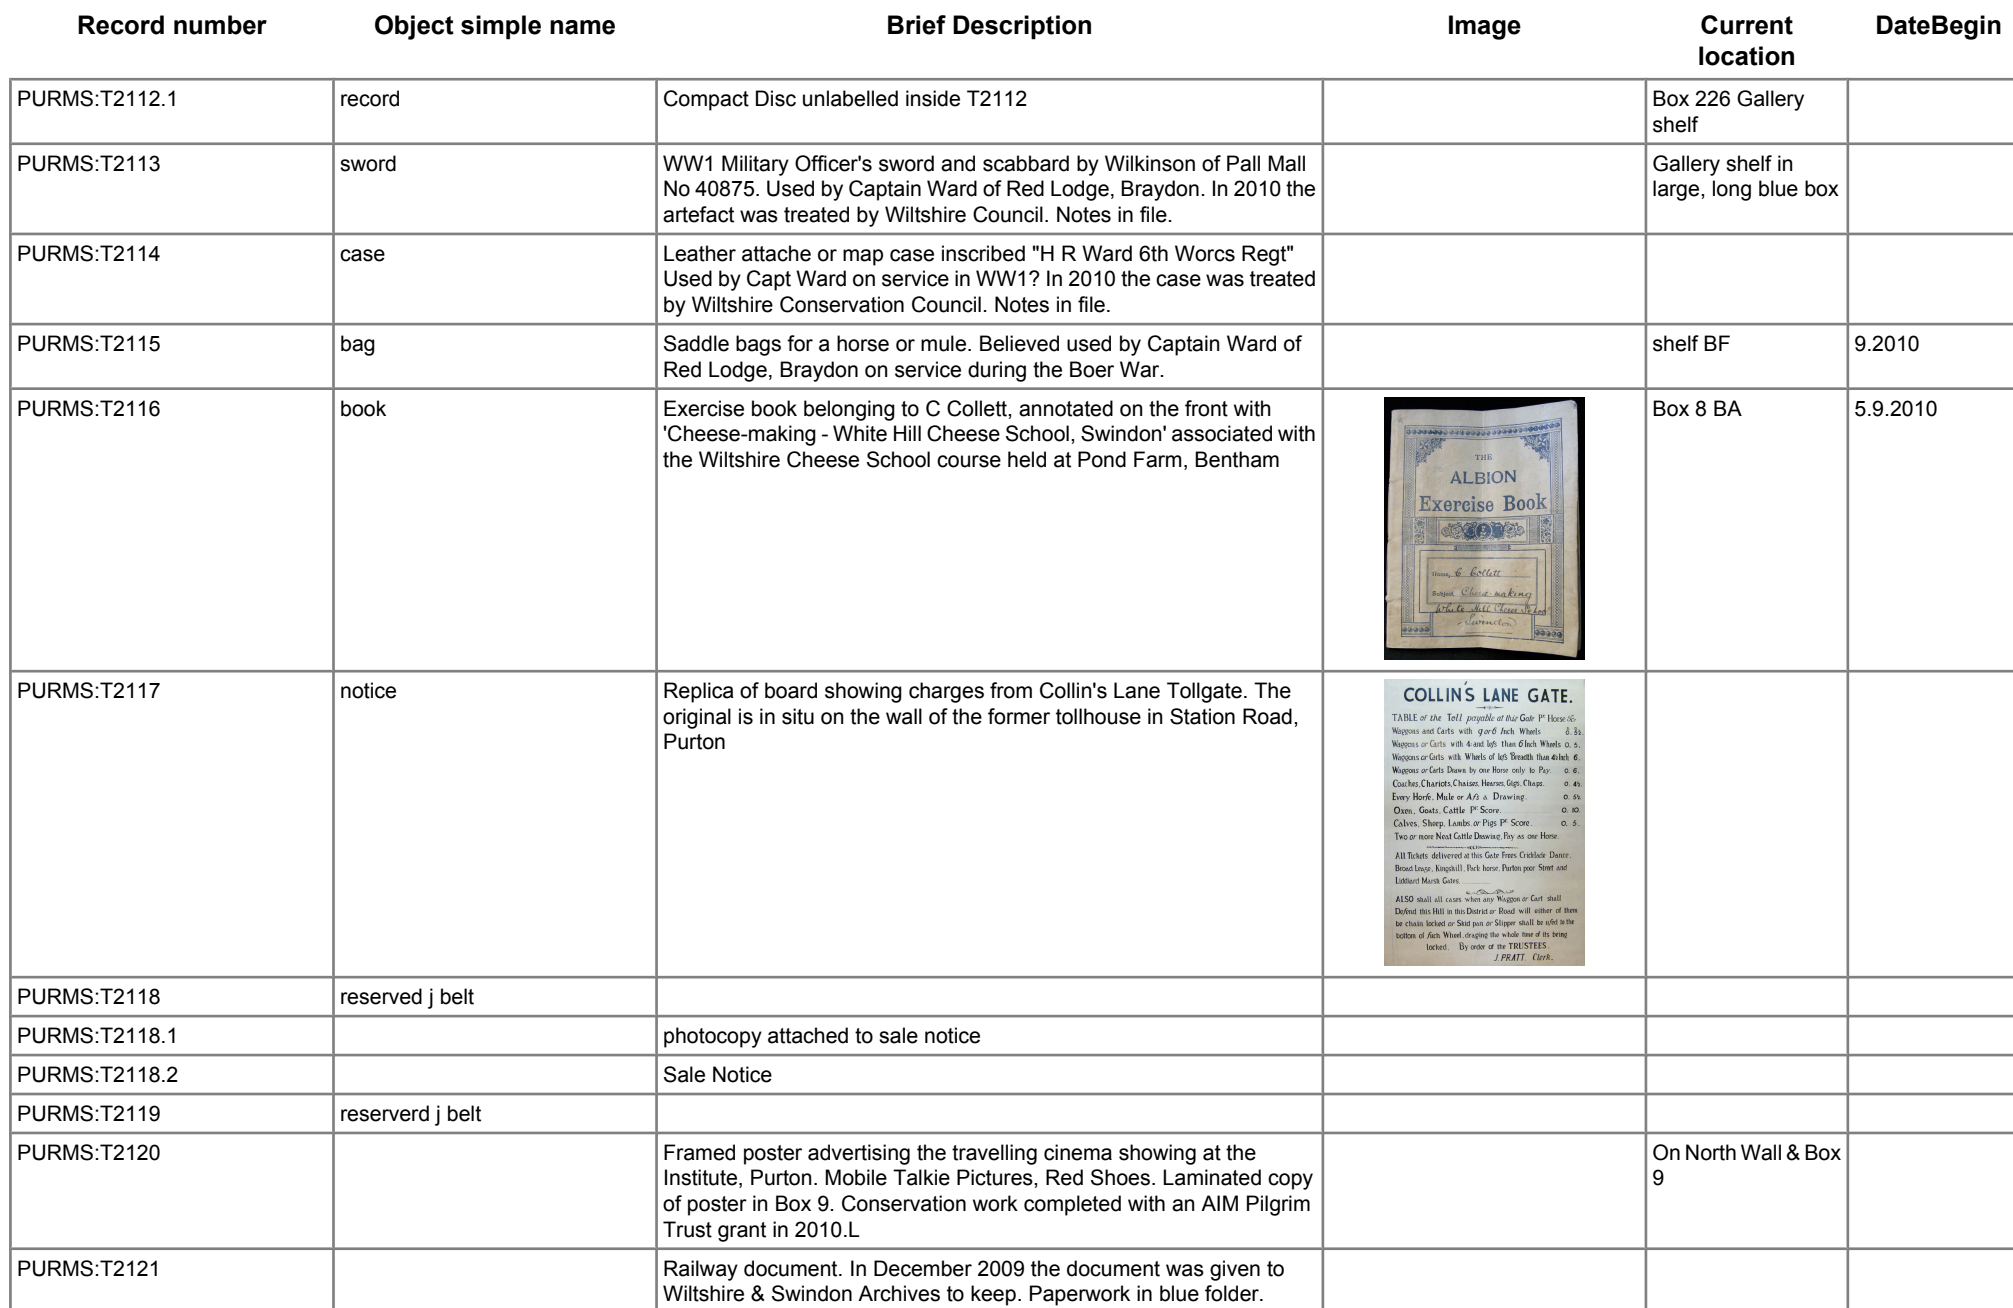 Record number Object simple name Brief Description Image Current location DateBegin
PURMS:T2112.1 record Compact Disc unlabelled inside T2112 Box 226 Gallery shelf
PURMS:T2113 sword WW1 Military Officer's sword and scabbard by Wilkinson of Pall Mall
No 40875. Used by Captain Ward of Red Lodge, Braydon. In 2010 the
artefact was treated by Wiltshire Council. Notes in file.
Gallery shelf in
large, long blue box
PURMS:T2114 case Leather attache or map case inscribed "H R Ward 6th Worcs Regt"
Used by Capt Ward on service in WW1? In 2010 the case was treated
by Wiltshire Conservation Council. Notes in file.
PURMS:T2115 bag Saddle bags for a horse or mule. Believed used by Captain Ward of
Red Lodge, Braydon on service during the Boer War.
shelf BF 9.2010
PURMS:T2116 book Exercise book belonging to C Collett, annotated on the front with
'Cheese-making - White Hill Cheese School, Swindon' associated with
the Wiltshire Cheese School course held at Pond Farm, Bentham
THE
ALBION
Exercise Book
Name, C Collett
Subject Cheese-making
White Hill Cheese School
Swindon
Box 8 BA 5.9.2010
PURMS:T2117 notice Replica of board showing charges from Collin's Lane Tollgate. The
original is in situ on the wall of the former tollhouse in Station Road,
Purton
COLLIN'S LANE GATE.
TABLE of the Toll payable at this Gate Pr Horse &c
Waggons and Carts with 9 or 6 Inch Wheels
Waggons or Carts with 4 and lefs than 6 Inch Wheels 0. 5.
Waggons or Carts with Wheels of lefs Breadth than 4 Inch 6.
Waggons or Carts Drawn by one Horse only to Pay. 0. 6.
Coaches, Chariots, Chaises, Hearses, Gigs, Chaps. 0. 4½
Every Horfe, Mule or Afs a Drawing. 0. 5½
Oxen, Goats, Cattle Pr Score. 0. 10.
Calves, Sheep, Lambs, or Pigs Pr Score. 0. 5.
Two or more Neat Cattle Drawing, Pay as one Horse.
All Tickets delivered at this Gate Frees Cricklade Dance,
Broad Lease, Kingshill, Pack horse, Purton poor Street and
Liddiard Marsh Gates.
ALSO shall all cases when any Waggon or Cart shall
Defend this Hill in this District or Road will either of them
be chain locked or Skid pan or Slipper shall be ufed to the
bottom of fach Wheel, draging the whole time of its being
locked. By order of the TRUSTEES.
J. PRATT. Clerk.
PURMS:T2118 reserved j belt
PURMS:T2118.1 photocopy attached to sale notice
PURMS:T2118.2 Sale Notice
PURMS:T2119 reserverd j belt
PURMS:T2120 Framed poster advertising the travelling cinema showing at the
Institute, Purton. Mobile Talkie Pictures, Red Shoes. Laminated copy
of poster in Box 9. Conservation work completed with an AIM Pilgrim
Trust grant in 2010.L
On North Wall & Box
9
PURMS:T2121 Railway document. In December 2009 the document was given to
Wiltshire & Swindon Archives to keep. Paperwork in blue folder.